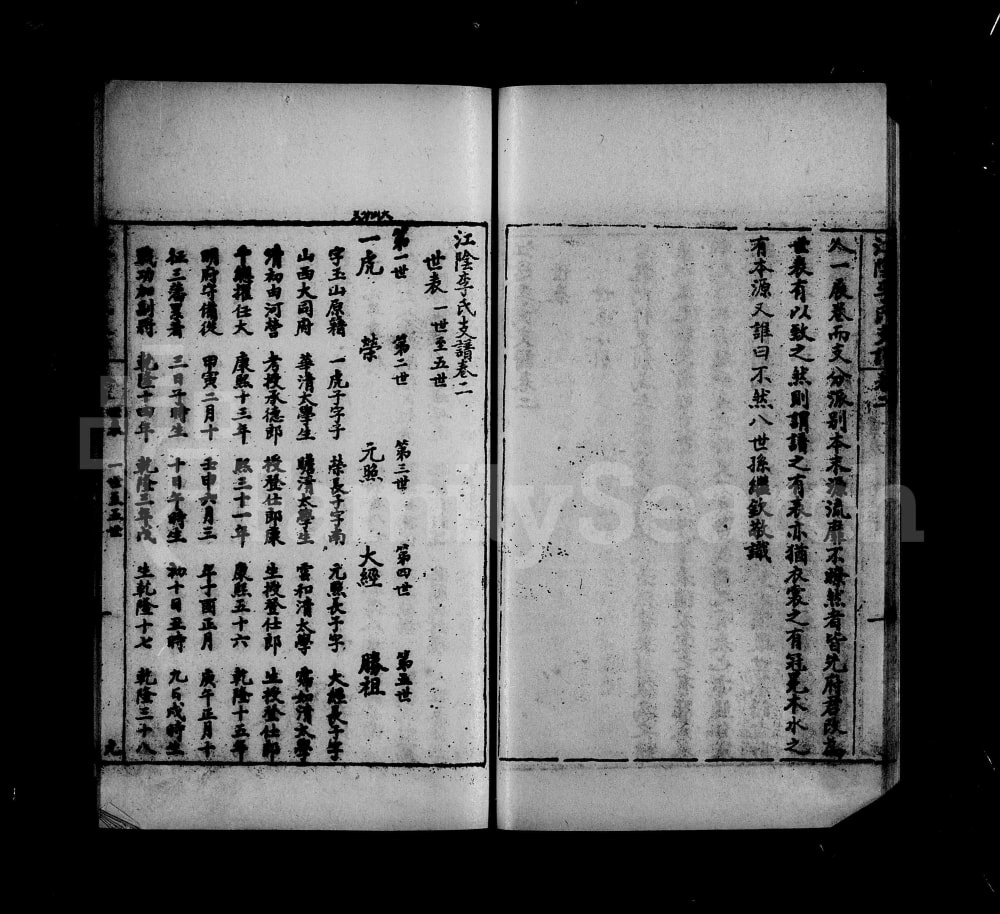 人一展卷而支分派別本末源流靡不瞭然者皆先府君改為
世表有以致之然則謂譜之有表亦猶衣裳之有冠冕木水之
有本源又誰曰不然八世孫繼欽敬識
江陰李氏支譜卷二
世表 一世至五世
第一世 第二世 第三世 第四世 第五世
一虎 榮 元照 大經 勝祖
字玉山原籍 一虎子字子 榮長子字南 元照長子字 大經長子字
山西大同府 華清太學生 瞻清太學生 雲和清太學 霭如清太學
清初由河營 考授承德郎 授登仕郎康 生授登仕郎 生授登仕郎
千總擢任大 康熙十三年 熙三十一年 康熙五十六 乾隆十五年
明府守備從 甲寅二月十 壬申六月三 年丁酉正月 庚午正月十
征三藩累著 三日子時生 十日午時生 初十日丑時 九日戌時生
戰功加副將 乾隆十四年 乾隆三年戊 生乾隆十七 乾隆三十八
一世至五世
FamilySearch